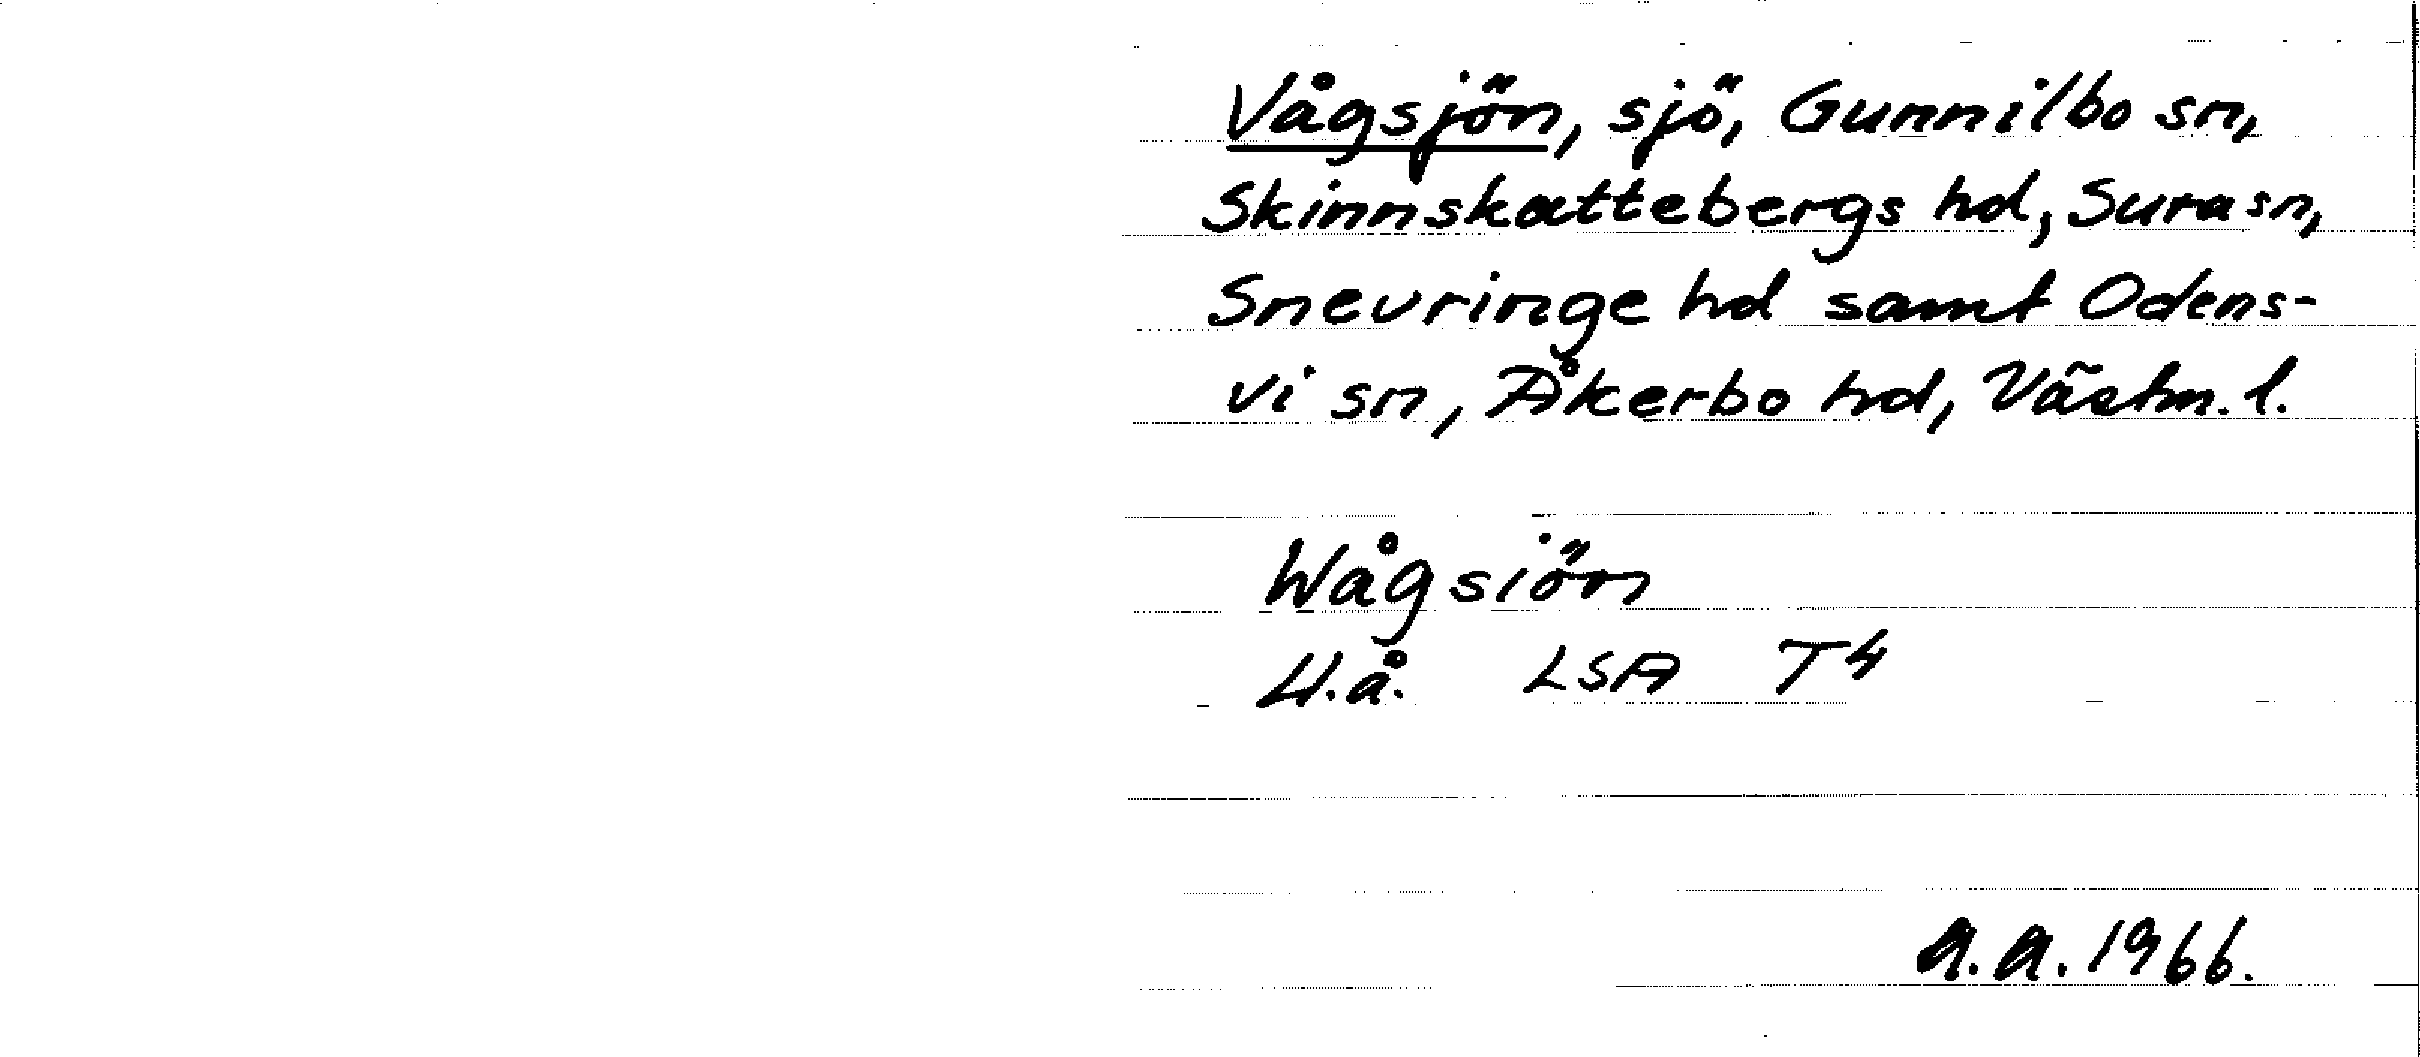 Vågsjön, sjö, Gunnilbo sn,
Skinnskattebergs hd, Sura sn,
Snevringe hd samt Odens-
vi sn, Åkerbo hd, Västm. l.
Wågsiön
U.å. LSA T4
A.A. 1966.